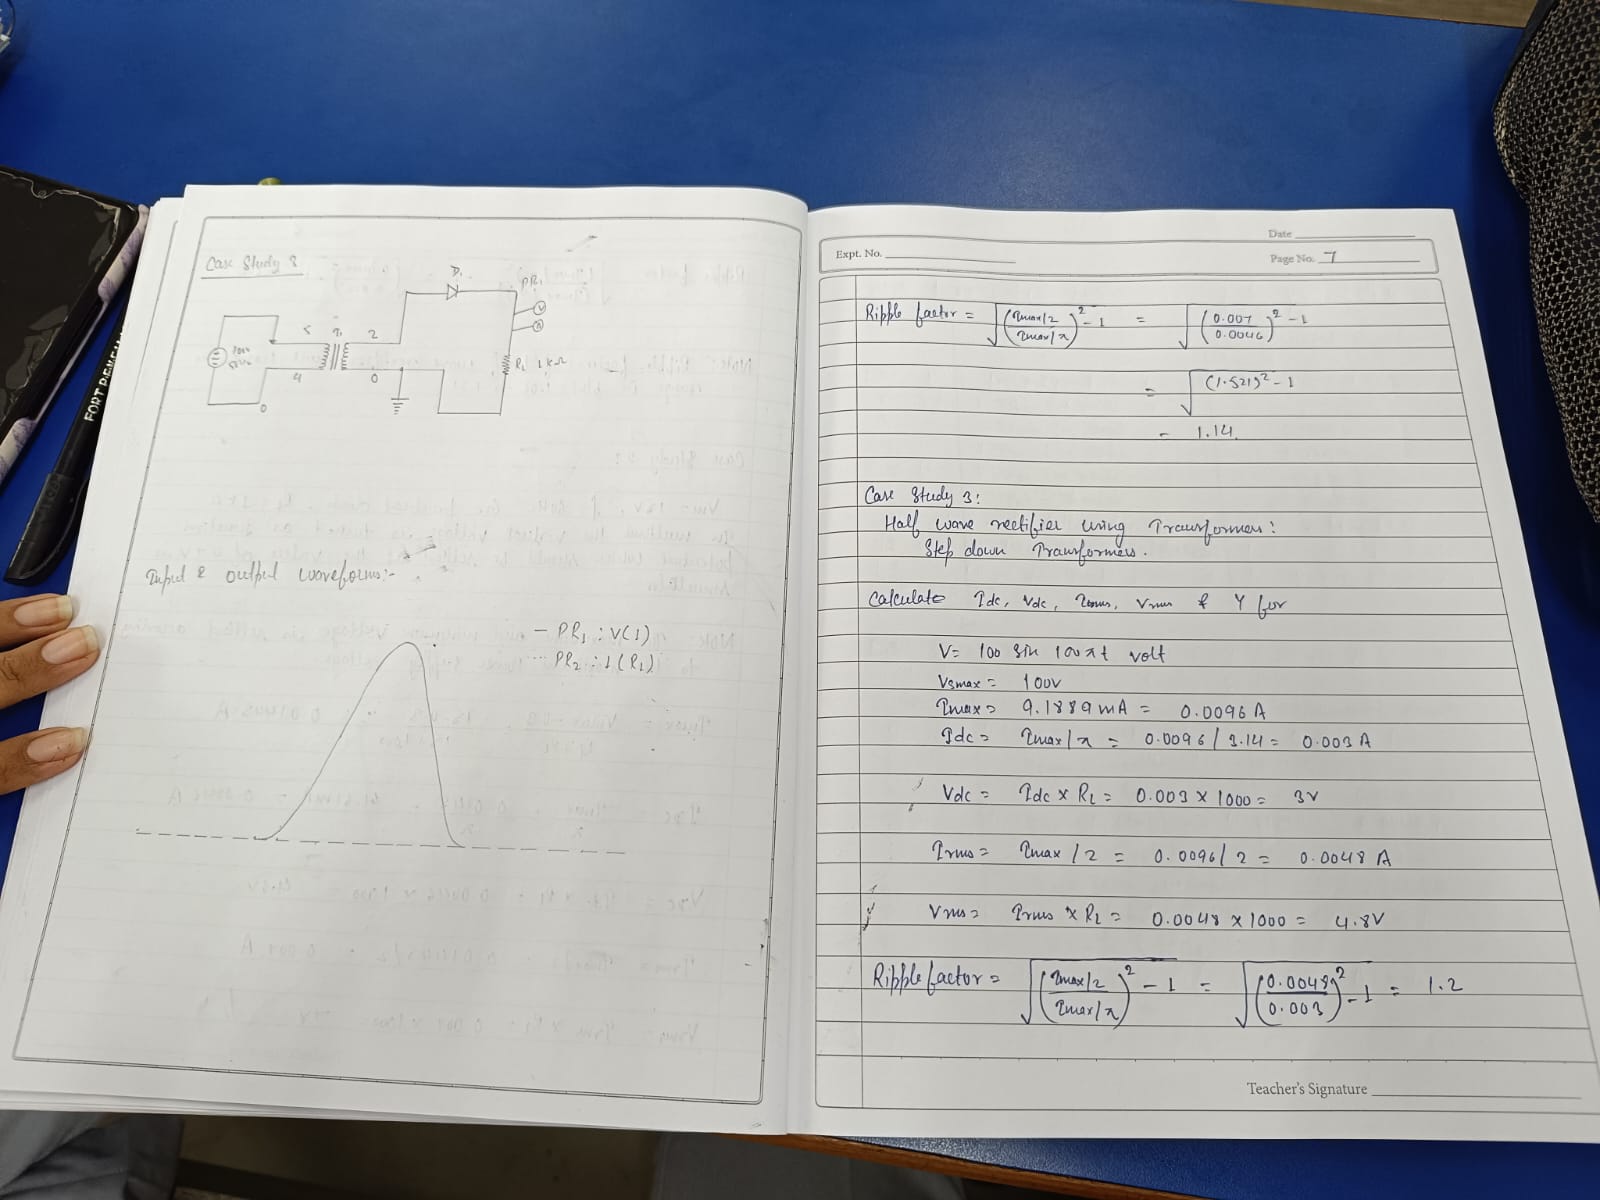 Case Study 3
D1
PR1
V
A
5
T1
2
R1 1kΩ
4
0
0
Input & output waveforms:-
— PR1 : V(1)
··· PR2 : I(R1)
Date
Expt. No.
Page No. 7
Ripple factor = √((Imax/2 / Imax/π)² - 1) = √((0.007 / 0.0046)² - 1)
= √((1.521)² - 1)
= 1.14
Case Study 3:
Half wave rectifier using Transformers:
Step down Transformers.
Calculate Idc, Vdc, Irms, Vrms & γ for
V= 100 Sin 100πt volt
Vsmax = 100V
Imax = 9.1889mA = 0.0096 A
Idc = Imax/π = 0.0096 / 3.14 = 0.003 A
Vdc = Idc × RL = 0.003 × 1000 = 3V
Irms = Imax /2 = 0.0096/2 = 0.0048 A
Vrms = Irms × RL = 0.0048 × 1000 = 4.8V
Ripple factor = √((Imax/2 / Imax/π)² - 1) = √((0.0048 / 0.003)² - 1) = 1.2
Teacher's Signature